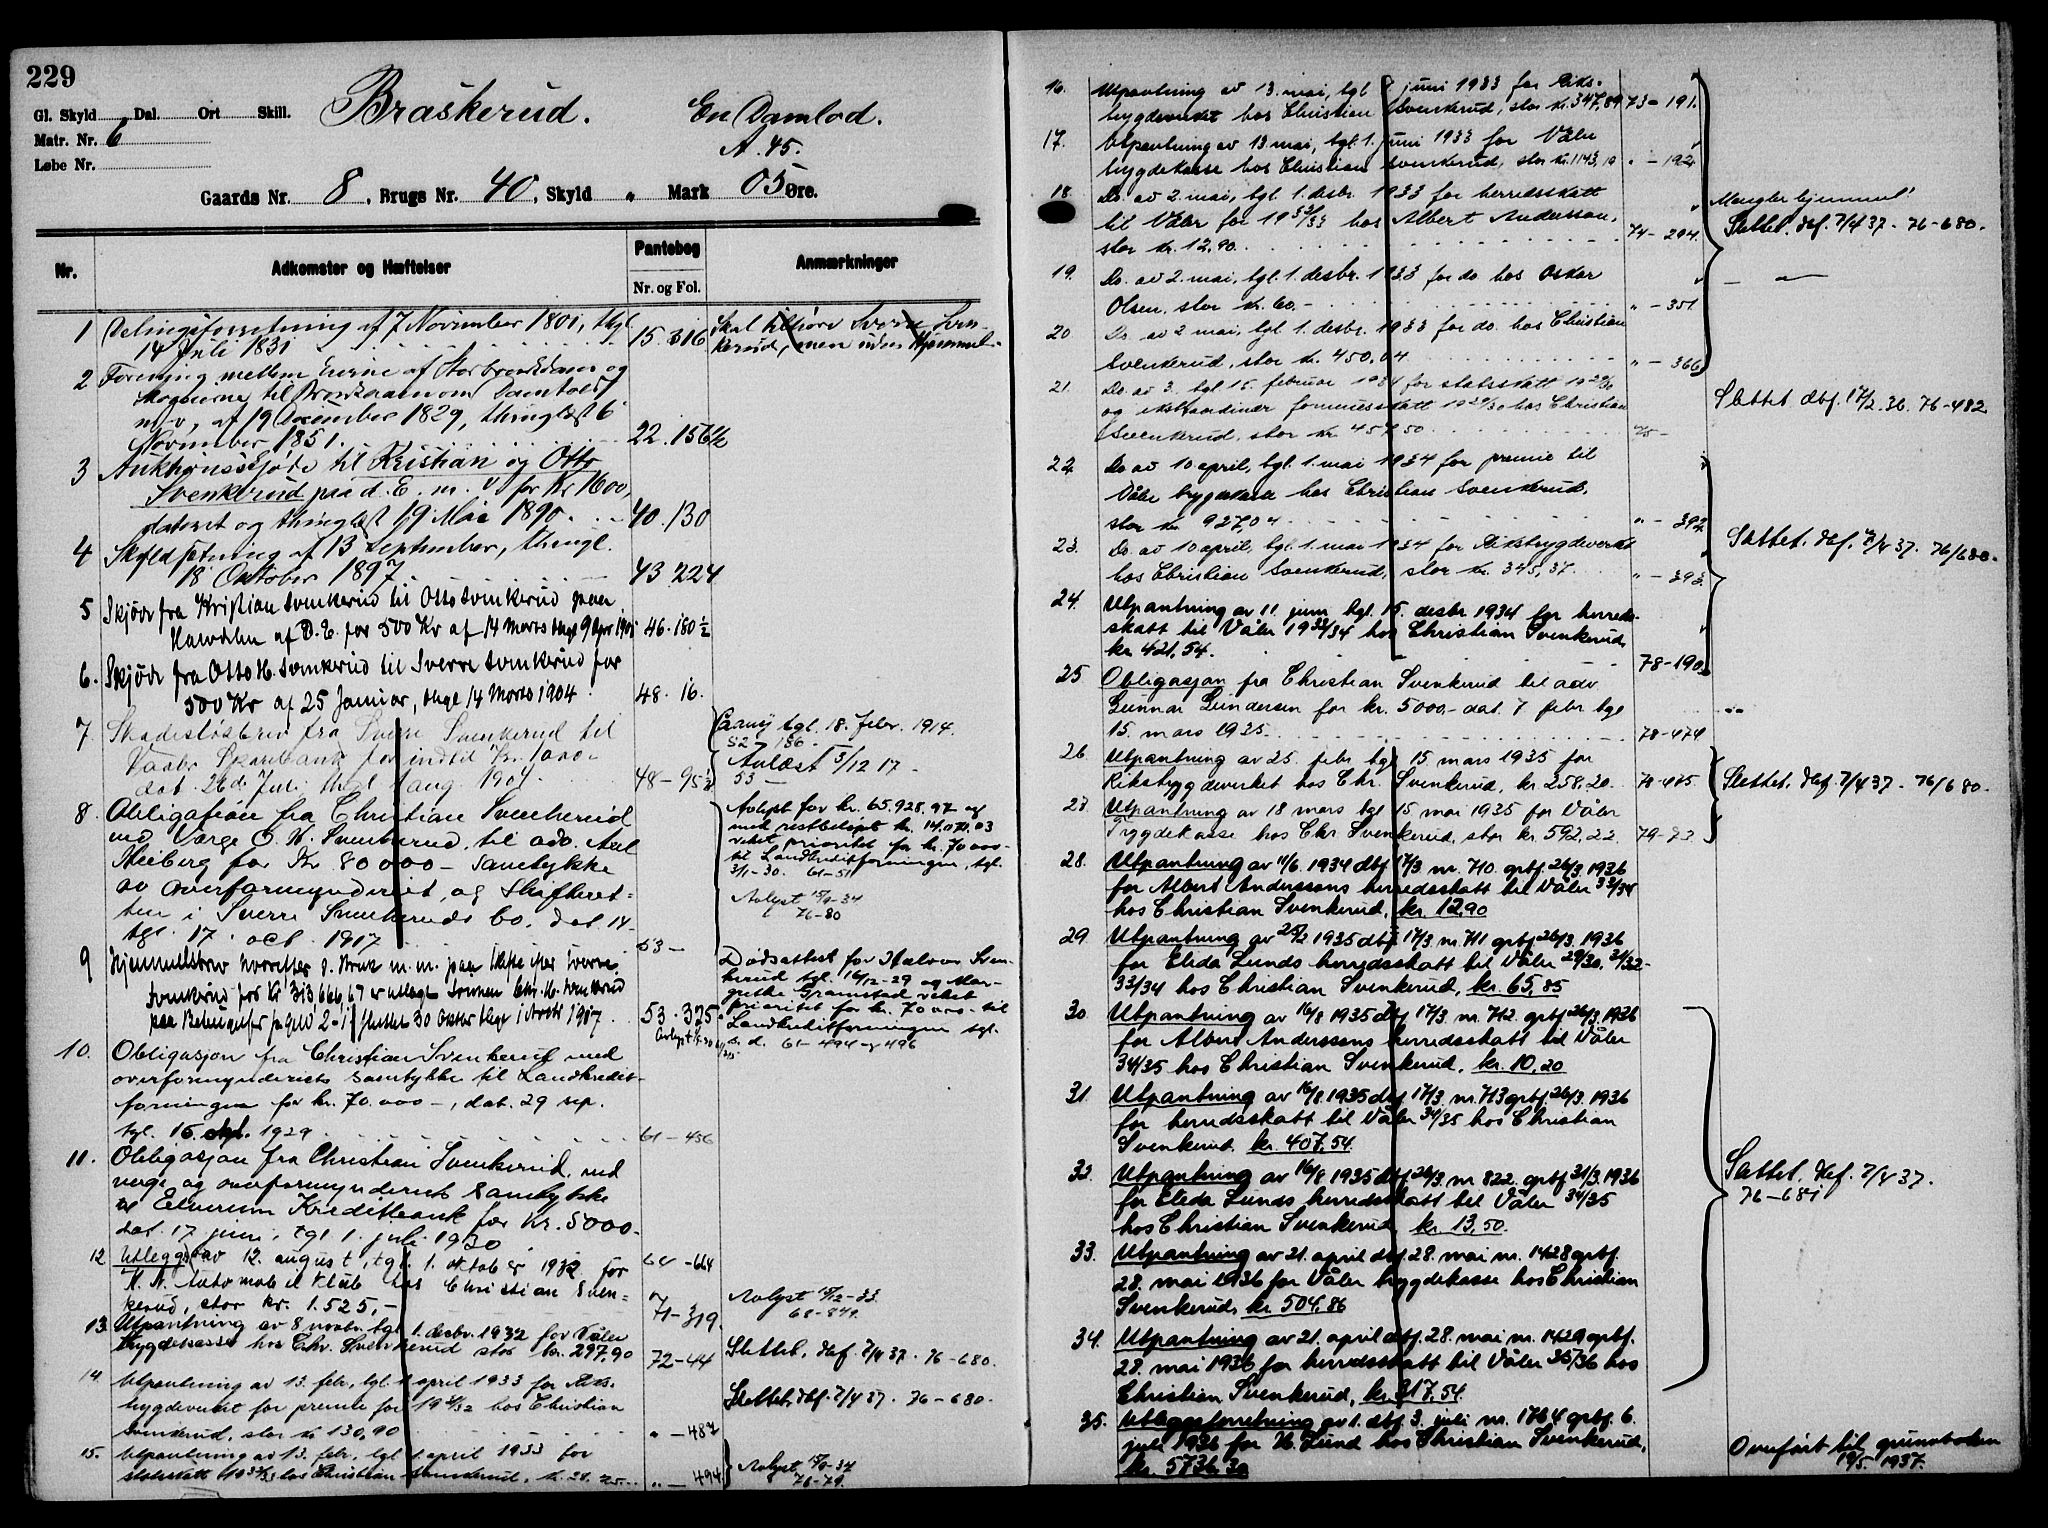 229
Gl. Skyld Dal. Ort Skill.
Braskerud. En Damlod.
Matr. Nr. 6
A. 45.
Løbe Nr.
Gaards Nr. 8, Brugs Nr. 40, Skyld „ Mark 05 Øre.
Nr. Adkomster og Hæftelser Pantebog Anmærkninger
Nr. og Fol.
1 Delingsforretning af 7 November 1801, thgl.
14 Juli 1831 15. 316
Skal tilhøre Sverre Sven-
kerud, men uden Hjemmel.
2 Forening mellem Eierne af Storbronkdam og
Skogeierne til
m. v., af 19 December 1829, thinglæst 6
November 1851. 22. 156 1/2
3 Auktionsskjøde til Kristian og Otto
Svenkerud paa d. E. m. v. for Kr 1600,
dateret og thinglæst 19 Mai 1890. 40. 130
4 Skyldsetning af 13 September, thingl.
18 Oktober 1897 43. 224
5 Skjøde fra Kristian Svenkerud til Otto Svenkerud paa
Halvdelen af D. E. for 500 Kr af 14 Marts thgl 9 Apr 1901 46. 180 1/2
6. Skjøde fra Otto H. Svenkerud til Sverre Svenkerud for
500 Kr af 25 Januar, thgl 14 Marts 1904 48. 16.
7. Skadesløsbrev fra Sverre Svenkerud til
Vaaler Sparebank for indtil Kr. 1000-
dat. 26de Juli, thgl aug 1904. 48 - 95 1/2
tgl. 18. Febr. 1914.
52 - 186.
Avlæst 5/12 17 -
53 -
8. Obligation fra Christian Svenkerud
med Værge O. H. Svenkerud til adv. Axel
Meiberg for Kr 80000 - Samtykke
av overformynderiet, og Skifteret-
ten i Sverre Svenkeruds bo. dat 14
tgl. 17. oct. 1917 53 -
Avlyst for kr. 65.928.97 og
med restbeløpt kr. 14.071.03
veket prioritet for kr. 70000-
til Landkreditforeningen, tgl.
3/1-30. 61-51
Avlyst 15/9-34
76-80
9 Hjemmelsbrev hvorefter d. Bruk m. m. paa Skifte efter Sverre
Svenkerud for Kr 313,666,67 er utlagt Sønnen Chr. H. Svenkerud
paa Betingelser sluttet 30 Oktbr thgl 1 1917. 53. 325
Dødsattest for Halvor Sven-
kerud tgl. 16/12-29 og Mar-
grethe Gramstad veket
prioritet for kr. 70000- til
Landkreditforeningen tgl.
s. d. 61-494 og 496
10. Obligasjon fra Christian Svenkerud med
overformynderiets samtykke til Landkredit-
foreningen for kr. 70.000 -, dat. 29 sep.
tgl. 15. 1929 61 - 436
11. Obligasjon fra Christian Svenkerud, med
verge og overformynderiets samtykke
til Elverum Kreditbank for Kr. 5000-
dat. 17 juni, tgl 1. juli 1930 64 - 664
12 Utlegg av 12. august, tgl. 1. oktober 1932 for
K. N. Automobil Klub hos Christian Sven-
kerud, stor kr. 1.525,- 71-319
Avlyst 15/12-33
68-849.
13. Utpantning av 8 novbr. tgl 1. desbr. 1932 for Våler
trygdekasse hos Chr. Svenkerud stor kr. 297,90 72-44
Slettet. dbf 7/4 37. 76-680.
14. Utpantning av 13. febr, tgl. 1 april 1933 for Riks-
trygdeverket for premie for 1931/32 hos Christian
Svenkerud, stor kr 130,90 „ - 487
Slettet. dbf. 7/4 37. 76-680.
15. Utpantning av 13. febr, tgl 1 april 1933 for
statsskatt 1932/33 hos Christian Svenkerud, kr. 28,25 „ - 494
Avlyst 15/9-34
76-79.
16. Utpantning av 13. mai, tgl juni 1933 for Riks-
trygdeverket hos Christian Svenkerud, stor kr. 347,89 73-191.
17. Utpantning av 13 mai, tgl. 1. juni 1933 for Våler
trygdekasse hos Christian Svenkerud, stor kr. 1143,10 „ - 192
18. Do. av 2. mai, tgl. 1. desbr. 1933 for herredsskatt
til Våler for 1932/33 hos Albert Anderson,
stor kr. 12,90 74-294.
Mangler hjemmel!
Slettet. dbf. 7/4 37. 76-680.
19. Do. av 2. mai, tgl. 1. desbr. 1933 for do hos Oskar
Olsen, stor kr. 60,- „ - 351
20 Do. av 2 mai, tgl 1. desbr. 1933 for do. hos Christian
Svenkerud, stor kr. 450,04 „ - 366
21. Do. av 3. tgl. 15. februar 1934 for statsskatt 1929/30
og ekstraordinær formuesskatt 1929/30 hos Christian
Svenkerud, stor kr 457,50 75 -
Slettet dbf. 17/2.36. 76-482
22. Do av 10 april, tgl. 1. mai 1934 for premie til
Våler trygdekasse hos Christian Svenkerud,
stor kr. 927,04 „ - 392
23. Do. av 10 april, tgl. 1. mai 1934 for Rikstrygdeverket
hos Christian Svenkerud, stor kr. 345,37. „ - 393
Slettet. dbf. 7/4 37. 76/680.
24. Utpantning av 11. juni, tgl. 15. desbr 1934 for herreds-
skatt til Våler 1933/34 hos Christian Svenkerud,
kr. 421,54. 78-190
25 Obligasjon fra Christian Svenkerud til adv
Gunnar Gundersen for kr. 5000.- dat. 7 febr. tgl
15. mars 1935. 78-474
26 Utpantning av 25. febr. tgl. 15 mars 1935 for
Rikstrygdeverket hos Chr. Svenkerud, kr. 258.20. 78-475.
27. Utpantning av 18 mars tgl 15 mai 1935 for Våler
Trygdekasse hos Chr Svenkerud, stor kr. 592,22 79-73
Slettet. dbf. 7/4 37. 76/680.
28. Utpantning av 11/6. 1934 dbf 17/3 nr. 710. grbf 26/3. 1936
for Albert Anderssons herredsskatt til Våler 33/34
hos Christian Svenkerud, kr. 12,90
29. Utpantning av 25/2 1935 dbf 17/3 nr. 711 grbf 26/3. 1936
for Elida Lunds herredsskatt til Våler 29/30, 31/32-
33/34 hos Christian Svenkerud, kr. 65,85
30. Utpantning av 16/8 1935 dbf 17/3. nr. 712. grbf 26/3. 1936
for Albert Anderssons herredsskatt til Våler
34/35 hos Christian Svenkerud, kr. 10,20
31. Utpantning av 16/8 1935 dbf 17/3. nr. 713 grbf 26/3. 1936
for herredsskatt til Våler 34/35 hos Christian
Svenkerud, kr. 407,54.
32. Utpantning av 16/8 1935 dbf 26/3 nr 822. grbf 31/3. 1936
for Elida Lunds herredsskatt til Våler 34/35
hos Christian Svenkerud, kr. 13,50.
Slettet. dbf. 7/4 37.
76-681
33. Utpantning av 21. april dbf 28. mai nr. 1428 grbf.
28. mai 1936 for Våler trygdekasse hos Christian
Svenkerud, kr. 504,86
34. Utpantning av 21. april dbf. 28. mai nr. 1429 grbf.
28. mai 1936 for herredsskatt til Våler 35/36 hos
Christian Svenkerud, kr. 317,54.
35. Utleggsforretning av 1. dbf 3. juli nr. 1764 grbf. 6.
juli 1936 for H. Lund hos Christian Svenkerud,
kr. 5736,30
Overført til grunnboken
19/5. 1937.